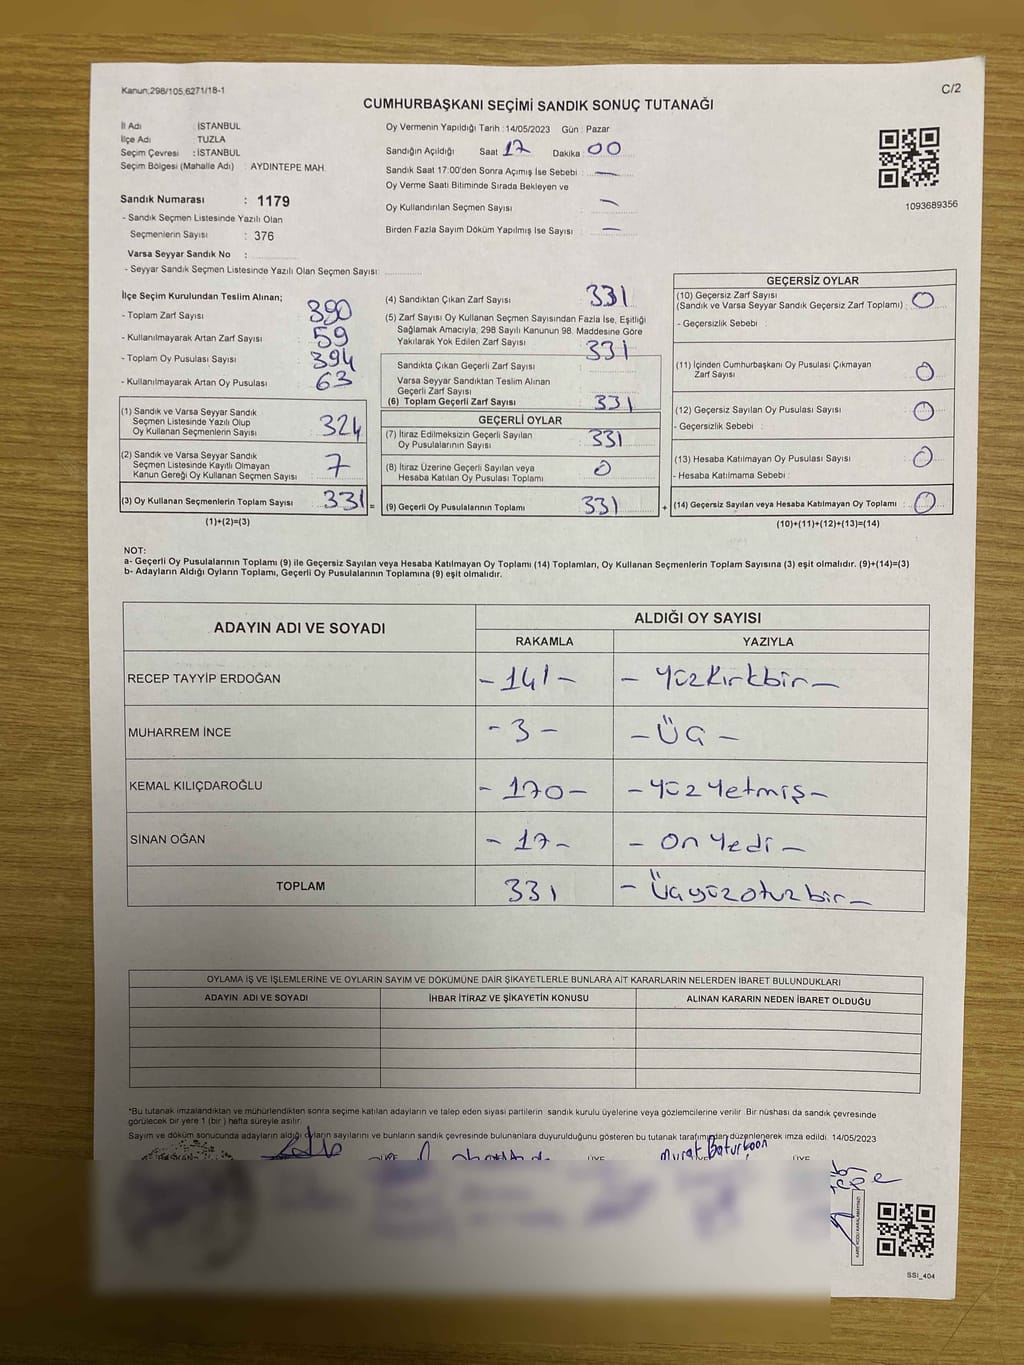 Kanun;298/105,6271/18-1
C/2
CUMHURBAŞKANI SEÇİMİ SANDIK SONUÇ TUTANAĞI
İl Adı : İSTANBUL
İlçe Adı : TUZLA
Seçim Çevresi : İSTANBUL
Seçim Bölgesi (Mahalle Adı) : AYDINTEPE MAH.
Sandık Numarası : 1179
- Sandık Seçmen Listesinde Yazılı Olan
Seçmenlerin Sayısı : 376
Varsa Seyyar Sandık No :
- Seyyar Sandık Seçmen Listesinde Yazılı Olan Seçmen Sayısı:
Oy Vermenin Yapıldığı Tarih : 14/05/2023 Gün : Pazar
Sandığın Açıldığı Saat 17 Dakika : 00
Sandık Saat 17:00'den Sonra Açımış İse Sebebi : —
Oy Verme Saati Bitiminde Sırada Bekleyen ve
Oy Kullandırılan Seçmen Sayısı —
Birden Fazla Sayım Döküm Yapılmış İse Sayısı : —
1093689356
İlçe Seçim Kurulundan Teslim Alınan;
- Toplam Zarf Sayısı : 390
- Kullanılmayarak Artan Zarf Sayısı : 59
- Toplam Oy Pusulası Sayısı : 394
- Kullanılmayarak Artan Oy Pusulası : 63
(1) Sandık ve Varsa Seyyar Sandık
Seçmen Listesinde Yazılı Olup
Oy Kullanan Seçmenlerin Sayısı : 324
(2) Sandık ve Varsa Seyyar Sandık
Seçmen Listesinde Kayıtlı Olmayan
Kanun Gereği Oy Kullanan Seçmen Sayısı : 7
(3) Oy Kullanan Seçmenlerin Toplam Sayısı : 331 =
(1)+(2)=(3)
(4) Sandıktan Çıkan Zarf Sayısı : 331
(5) Zarf Sayısı Oy Kullanan Seçmen Sayısından Fazla İse, Eşitliği
Sağlamak Amacıyla, 298 Sayılı Kanunun 98. Maddesine Göre
Yakılarak Yok Edilen Zarf Sayısı :
331
Sandıkta Çıkan Geçerli Zarf Sayısı :
Varsa Seyyar Sandıktan Teslim Alınan
Geçerli Zarf Sayısı :
(6) Toplam Geçerli Zarf Sayısı : 331
GEÇERLİ OYLAR
(7) İtiraz Edilmeksizin Geçerli Sayılan
Oy Pusulalarının Sayısı : 331
(8) İtiraz Üzerine Geçerli Sayılan veya
Hesaba Katılan Oy Pusulası Toplamı : 0
(9) Geçerli Oy Pusulalarının Toplamı : 331 +
GEÇERSİZ OYLAR
(10) Geçersiz Zarf Sayısı
(Sandık ve Varsa Seyyar Sandık Geçersiz Zarf Toplamı) : 0
- Geçersizlik Sebebi :
(11) İçinden Cumhurbaşkanı Oy Pusulası Çıkmayan
Zarf Sayısı : 0
(12) Geçersiz Sayılan Oy Pusulası Sayısı : 0
- Geçersizlik Sebebi :
(13) Hesaba Katılmayan Oy Pusulası Sayısı : 0
- Hesaba Katılmama Sebebi :
(14) Geçersiz Sayılan veya Hesaba Katılmayan Oy Toplamı : 0
(10)+(11)+(12)+(13)=(14)
NOT:
a- Geçerli Oy Pusulalarının Toplamı (9) ile Geçersiz Sayılan veya Hesaba Katılmayan Oy Toplamı (14) Toplamları, Oy Kullanan Seçmenlerin Toplam Sayısına (3) eşit olmalıdır. (9)+(14)=(3)
b- Adayların Aldığı Oyların Toplamı, Geçerli Oy Pusulalarının Toplamına (9) eşit olmalıdır.
ADAYIN ADI VE SOYADI
ALDIĞI OY SAYISI
RAKAMLA YAZIYLA
RECEP TAYYİP ERDOĞAN -141- - Yüzkırkbir -
MUHARREM İNCE -3- - Üç -
KEMAL KILIÇDAROĞLU -170- - Yüzyetmiş -
SİNAN OĞAN -17- - On Yedi -
TOPLAM 331 - Üçyüzotuzbir -
OYLAMA İŞ VE İŞLEMLERİNE VE OYLARIN SAYIM VE DÖKÜMÜNE DAİR ŞİKAYETLERLE BUNLARA AİT KARARLARIN NELERDEN İBARET BULUNDUKLARI
ADAYIN ADI VE SOYADI İHBAR İTİRAZ VE ŞİKAYETİN KONUSU ALINAN KARARIN NEDEN İBARET OLDUĞU
*Bu tutanak imzalandıktan ve mühürlendikten sonra seçime katılan adayların ve talep eden siyasi partilerin sandık kurulu üyelerine veya gözlemcilerine verilir. Bir nüshası da sandık çevresinde
görülecek bir yere 1 (bir) hafta süreyle asılır.
Sayım ve döküm sonucunda adayların aldığı oyların sayılarını ve bunların sandık çevresinde bulunanlara duyurulduğunu gösteren bu tutanak tarafımızdan düzenlenerek imza edildi. 14/05/2023
ÜYE
ÜYE
SSİ_404